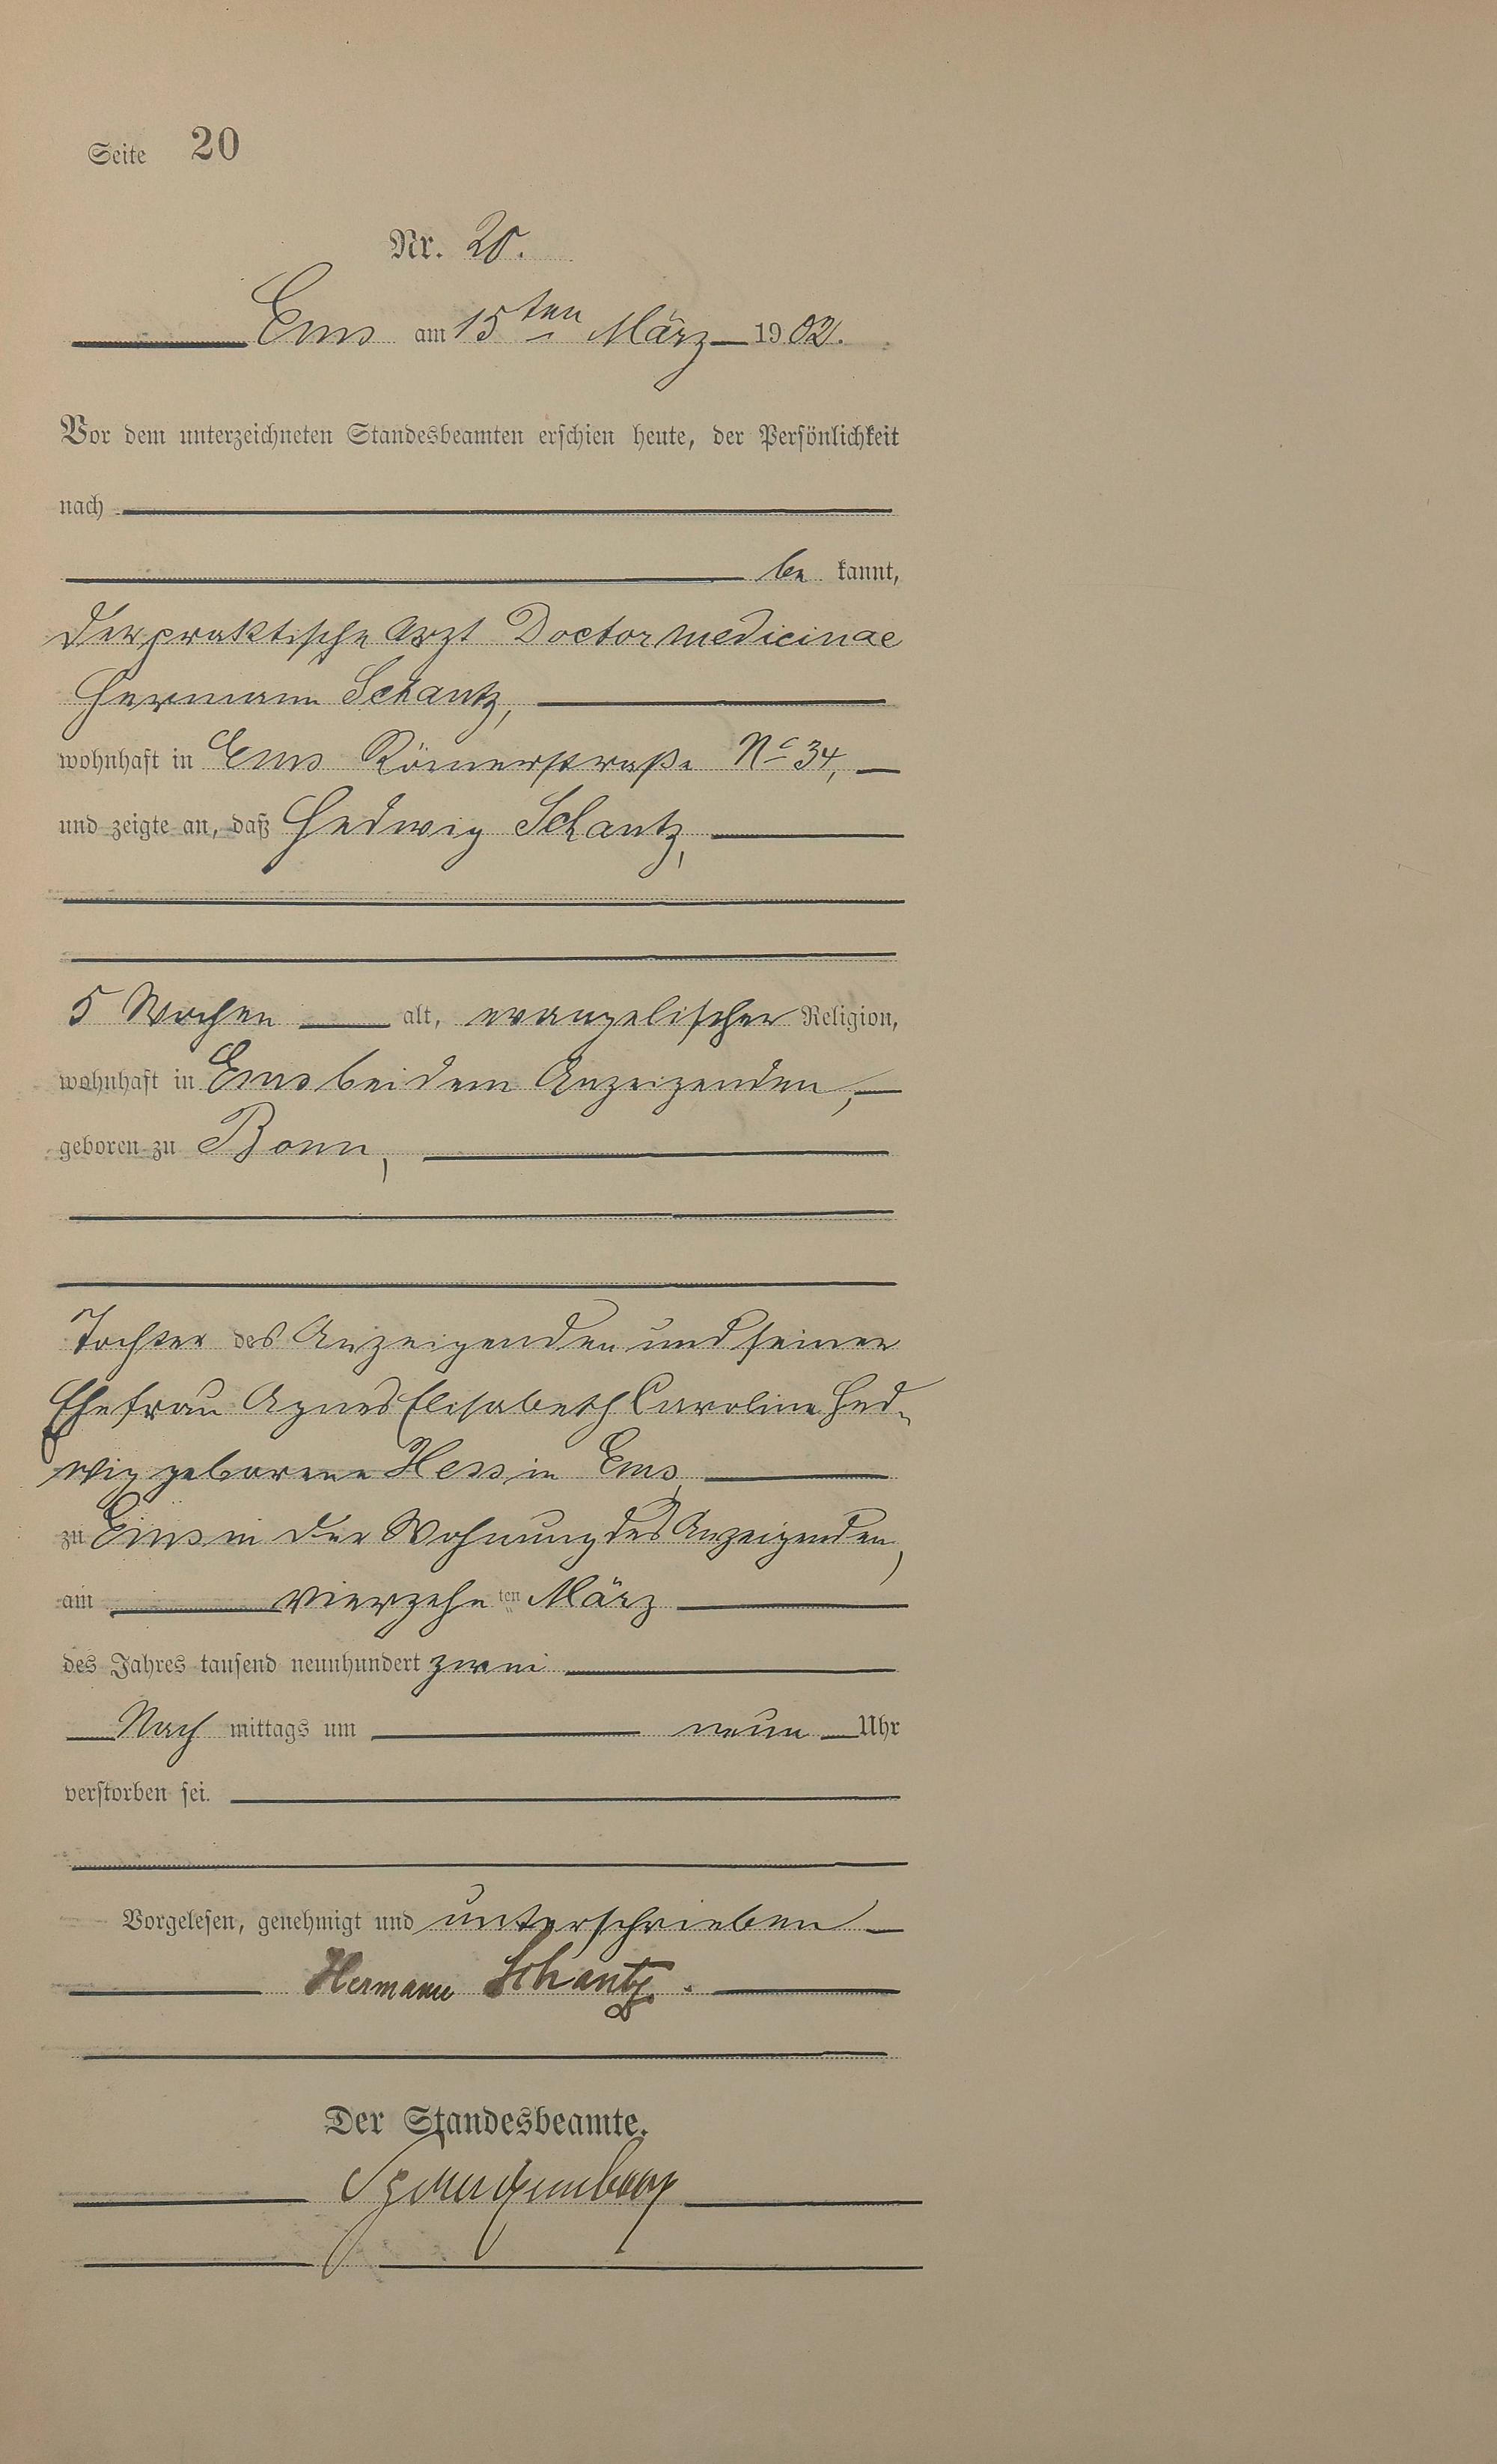 Seite 20
Nr. 20.
Ems am 15ten März 1902.
Vor dem unterzeichneten Standesbeamten erschien heute, der Persönlichkeit
nach
be kannt,
der praktische Arzt Doctor medicinae
Hermann Schantz,
wohnhaft in Ems Römerstraße No 34,
und zeigte an, daß Hedwig Schantz,
5 Wochen alt, evangelischer Religion,
wohnhaft in Ems bei dem Anzeigenden,
geboren zu Bonn,
Tochter des Anzeigenden und seiner
Ehefrau Agnes Elisabeth Caroline Hed-
wig geborene Hess in Ems,
zu Ems in der Wohnung des Anzeigenden,
am vierzehnten März
des Jahres tausend neunhundert zwei
Nach mittags um neun Uhr
verstorben sei.
Vorgelesen, genehmigt und unterschrieben
Hermann Schantz.
Der Standesbeamte.